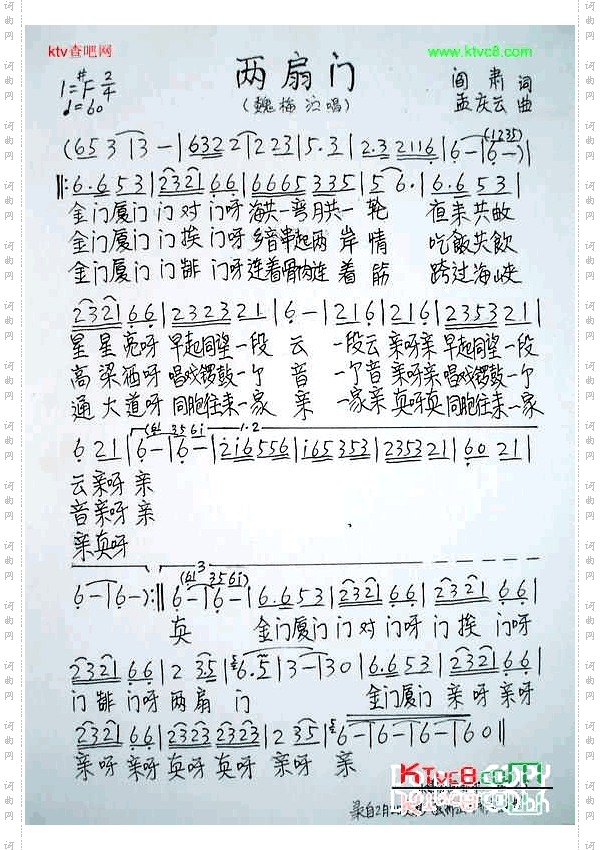 ktv查吧网
www.ktvc8.com
两扇门
(魏梅 演唱)
1=#F 2/4
♩=60
阎肃 词
孟庆云 曲
(65 3 | 3 - | 6322 | 223 | 5.3 | 2.3 2116 | 6 - | 6 - ) |
(1235)
‖: 6.6 5 3 | 2321 6 6 | 6665 335 | 5 6. | 6.6 5 3 |
金门厦门 门对 门呀 海共一弯月共一 轮 夜来共邀
金门厦门 门挨 门呀 乡音串起两 岸 情 吃飯共飲
金门厦门 门都 门呀 连着骨肉连 着 筋 跨过海峡
2321 6 6 | 2323 21 | 6 - | 216 | 216 | 2353 21 |
星星亮呀 早起同望一段 云 一段云 亲呀亲 早起同望一段
高粱酒呀 唱戏锣鼓一个 音 一个音 亲呀亲 唱戏锣鼓一个
通大道呀 同胞往来一家 亲 一家亲 真呀真 同胞往来一家
(61 3561 1.2
6 21 | 6 - | 6 - | 216556 | 165353 | 235321 | 60 21 |
云亲呀 亲
音亲呀 亲
亲真呀
3
(61 3561)
6 - | 6 - ) :‖ 6 - | 6 - | 6.6 5 3 | 2321 6 6 | 2321 6 6 |
真 金门厦门 门对 门呀 门挨 门呀
2321 6 6 | 2 35 | 6.5 | 3 - | 3 0 | 6.6 5 3 | 2321 6 6 |
门都 门呀 两扇 门 金门厦门 亲呀 亲呀
2321 6 6 | 2323 2323 | 2 35 | 6 - | 6 - | 6 - | 6 0 ‖
亲呀 亲呀 真呀 真呀 亲呀 亲
KTvc8.com
COPY
词曲网